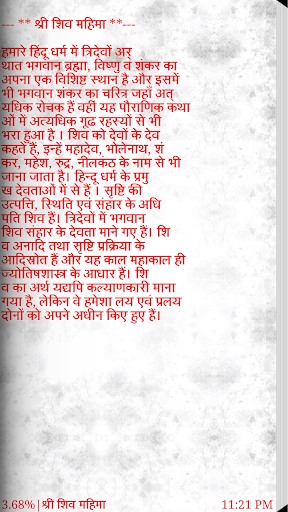 --- ** श्री शिव महिमा **---
हमारे हिंदू धर्म में त्रिदेवों अर्
थात भगवान ब्रह्मा, विष्णु व शंकर का
अपना एक विशिष्ट स्थान है और इसमें
भी भगवान शंकर का चरित्र जहाँ अत्
यधिक रोचक हैं वहीं यह पौराणिक कथा
ओं में अत्यधिक गूढ रहस्यों से भी
भरा हुआ है । शिव को देवों के देव
कहते हैं, इन्हें महादेव, भोलेनाथ, शं
कर, महेश, रुद्र, नीलकंठ के नाम से भी
जाना जाता है। हिन्दू धर्म के प्रमु
ख देवताओं में से हैं । सृष्टि की
उत्पत्ति, स्थिति एवं संहार के अधि
पति शिव हैं। त्रिदेवों में भगवान
शिव संहार के देवता माने गए हैं। शि
व अनादि तथा सृष्टि प्रक्रिया के
आदिस्रोत हैं और यह काल महाकाल ही
ज्योतिषशास्त्र के आधार हैं। शि
व का अर्थ यद्यपि कल्याणकारी माना
गया है, लेकिन वे हमेशा लय एवं प्रलय
दोनों को अपने अधीन किए हुए हैं।
3.68%|श्री शिव महिमा 11:21 PM